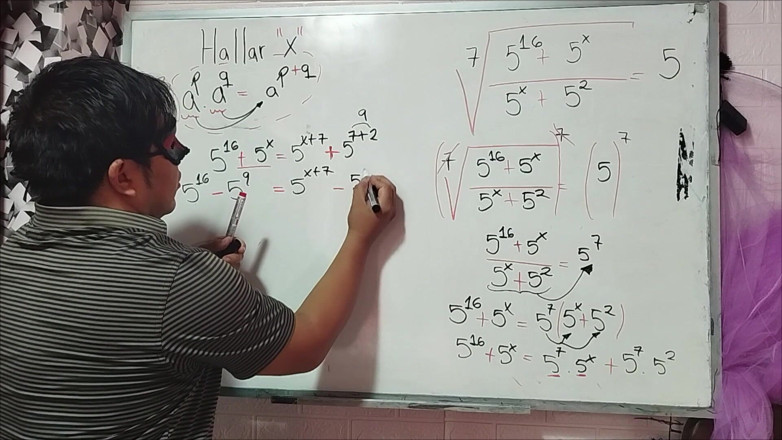 Hallar "X"
(a^p . a^q = a^(p+q))
5^16 + 5^x = 5^(x+7) + 5^(7+2) 9
5^16 - 5^9 = 5^(x+7) - 5
⁷√((5^16 + 5^x)/(5^x + 5^2)) = 5
(⁷√((5^16 + 5^x)/(5^x + 5^2)))^7 = (5)^7
(5^16 + 5^x)/(5^x + 5^2) = 5^7
5^16 + 5^x = 5^7(5^x + 5^2)
5^16 + 5^x = 5^7 . 5^x + 5^7 . 5^2